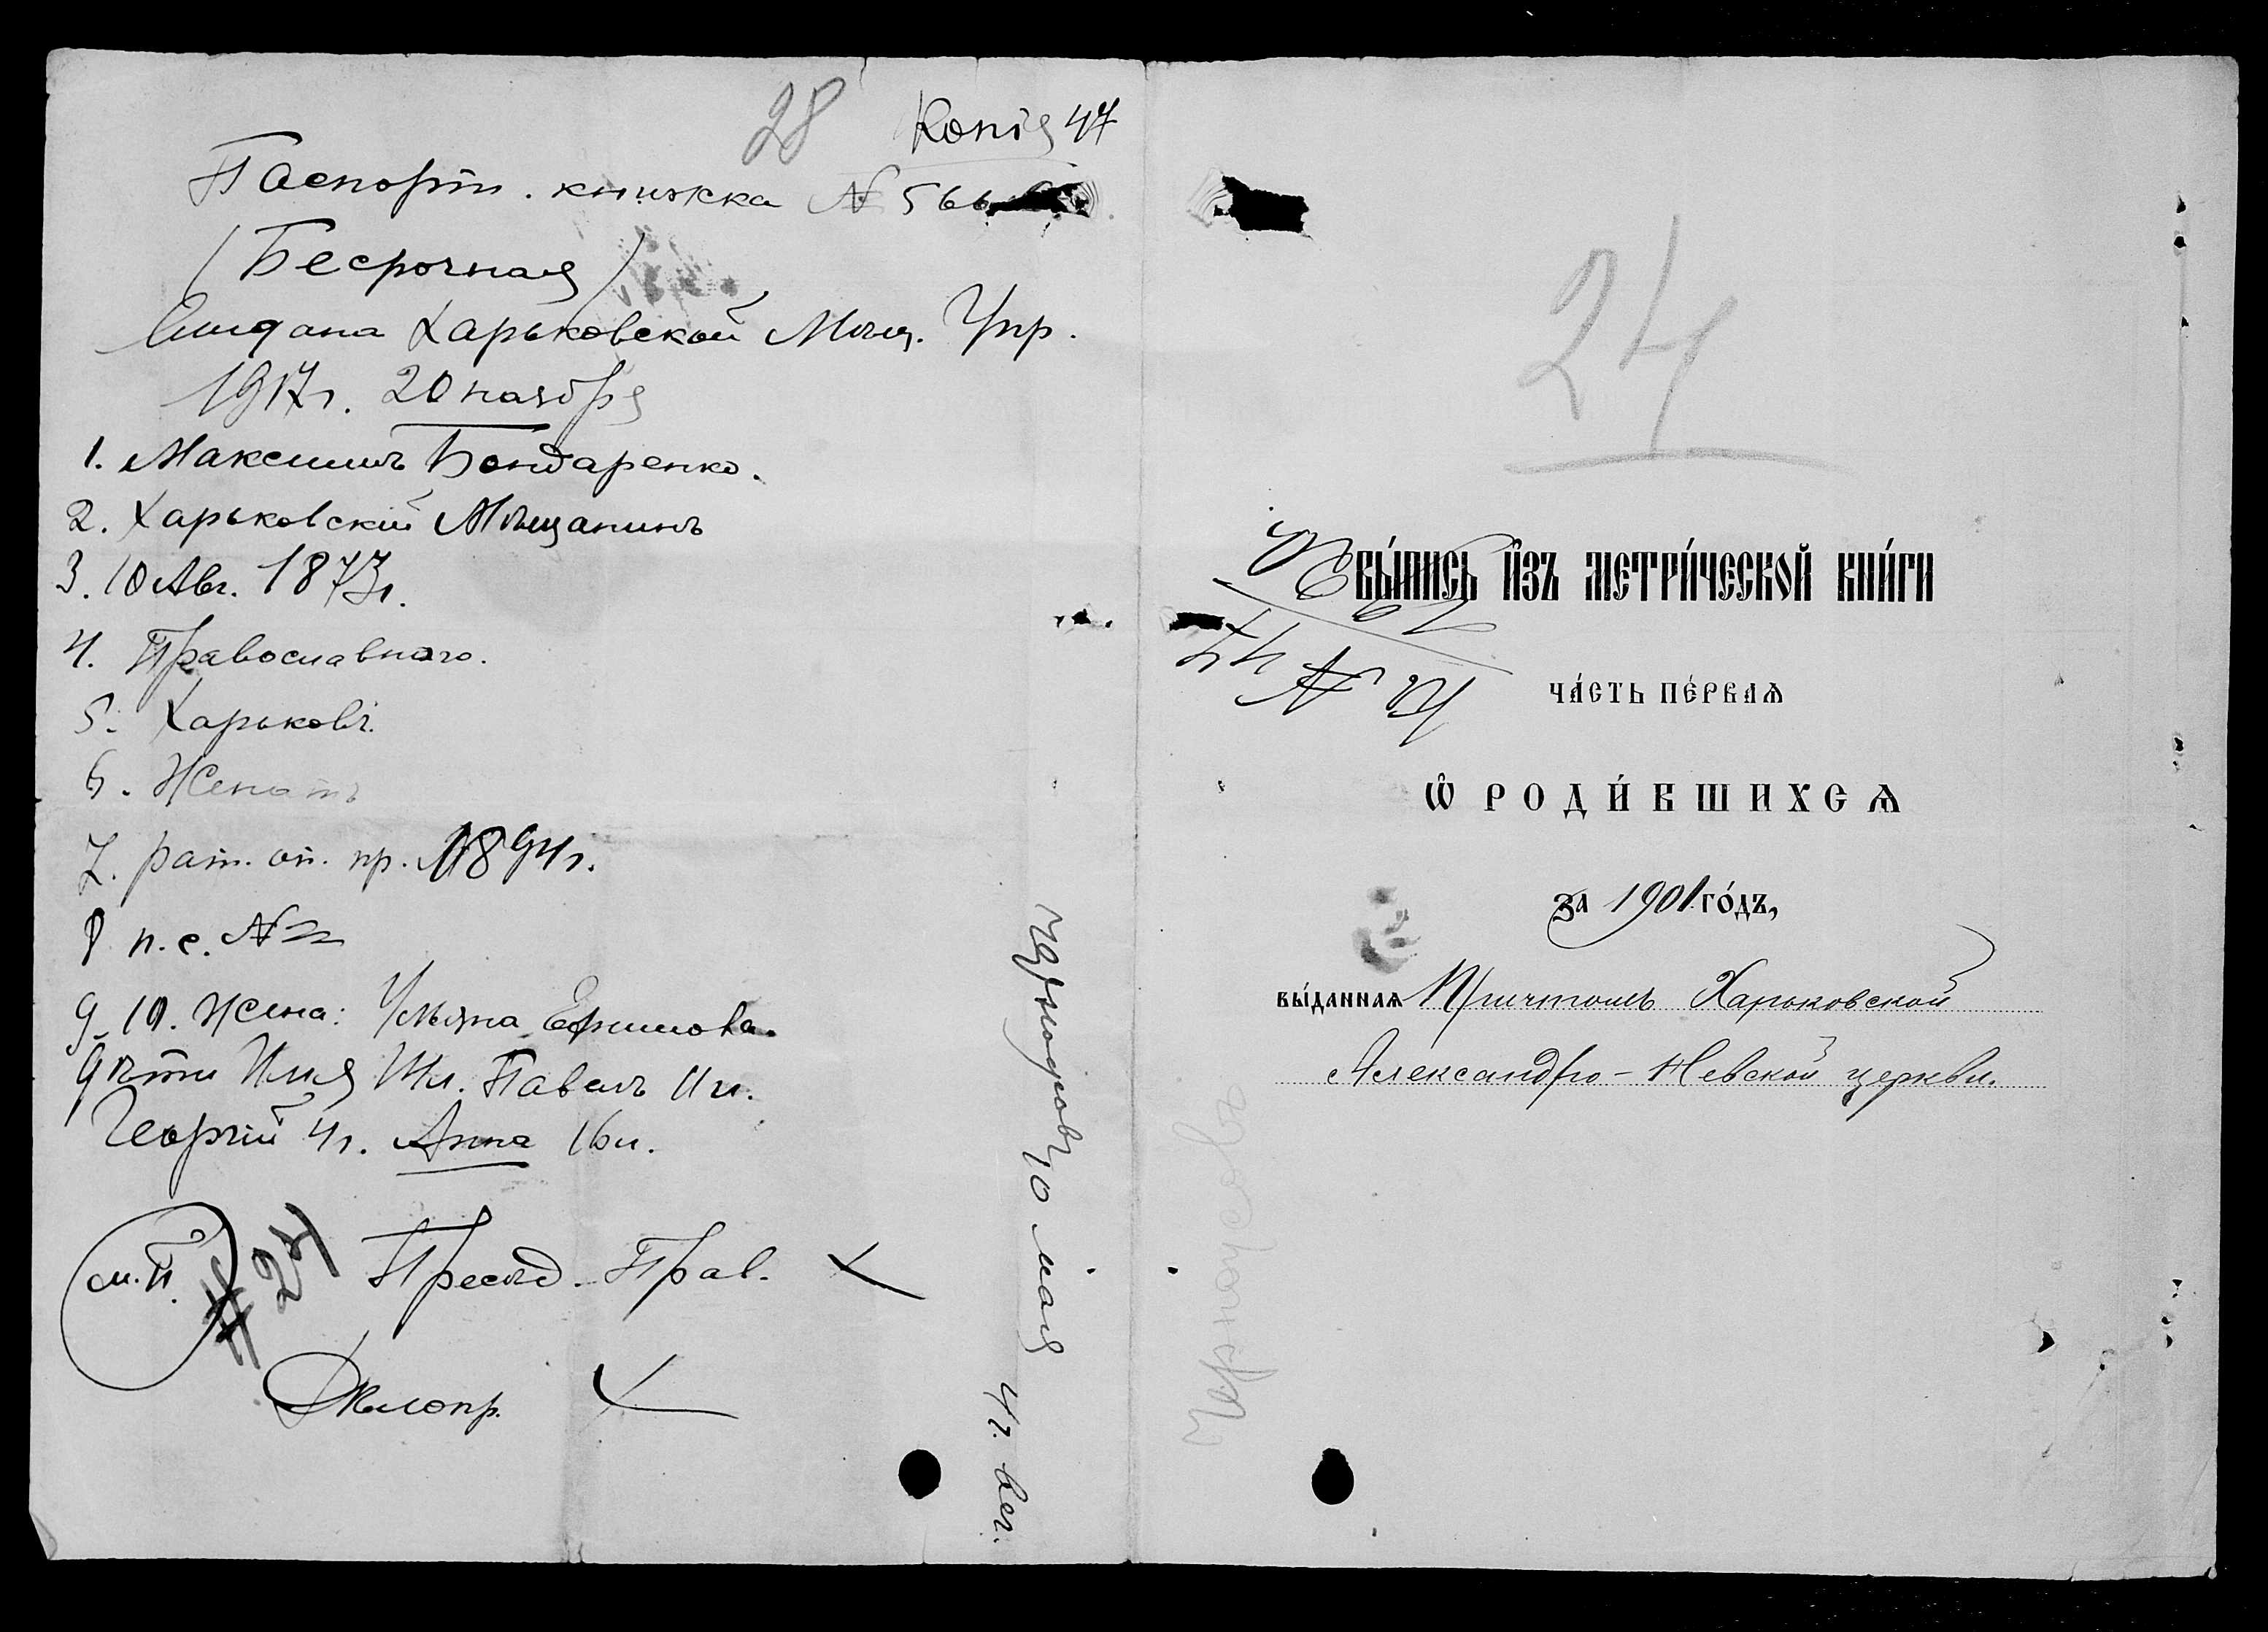 28 Копія 47
Паспорт. книжка № 566
(Бесрочная)
Выдана Харьковской Мѣщ. Упр.
1917г. 20 ноября
1. Максимъ Бондаренко.
2. Харьковскій Мѣщанинъ
3. 10 Авг. 1873г.
4. Православнаго.
5. Харьковъ.
6. Женатъ
7. рат. оп. пр. 1894г.
8 п. с. №
9-10. Жена: Ульяна Ефимова.
Дѣти Илія Павелъ 11 л.
Георгій 4г. Анна 16л.
м. П.
#24
Предсѣд. Прав.
Дѣлопр.
Черноусовъ 10 мая
4 г. веч.
24
Вы́пись и҆зъ метри́ческой кни́ги
ча́сть пе́рваѧ
ѡ҆ роди́вшихсѧ
за 1901 го́дъ,
вы́даннаѧ Причтомъ Харьковской
Александро-Невской церкви.
Черноусовъ